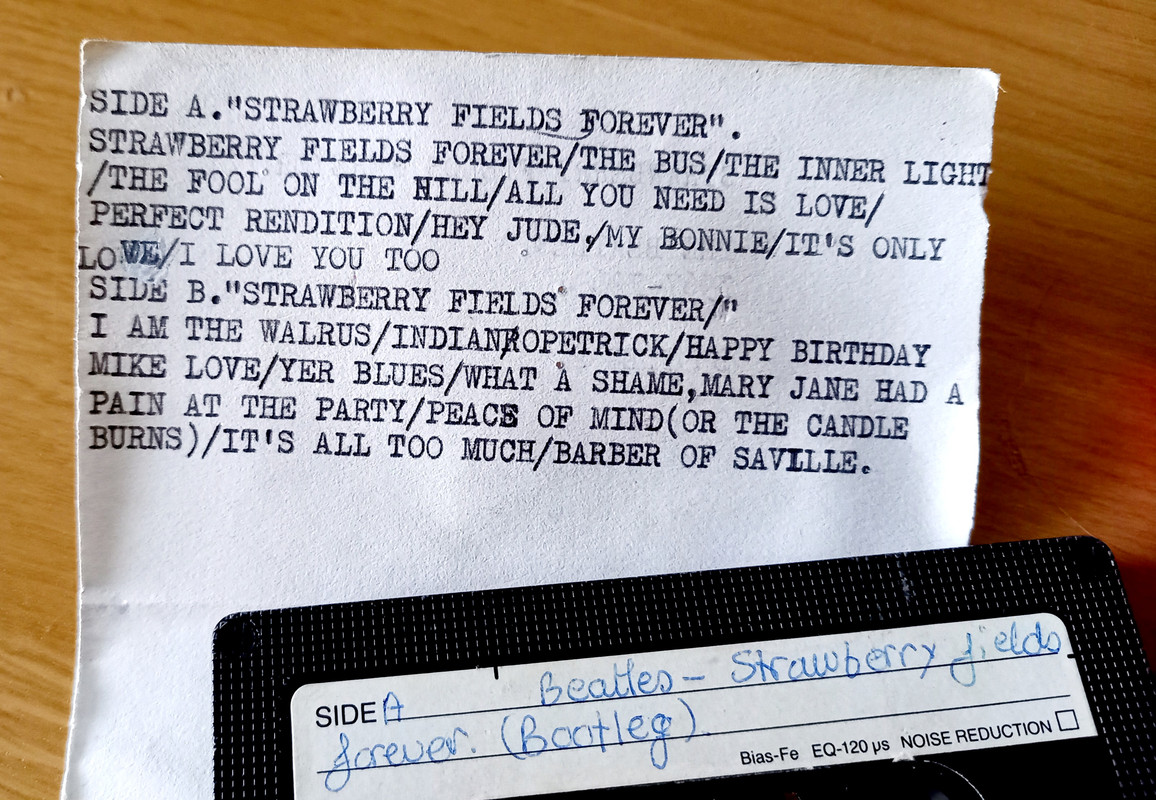 SIDE A."STRAWBERRY FIELDS FOREVER".
STRAWBERRY FIELDS FOREVER/THE BUS/THE INNER LIGHT
/THE FOOL ON THE HILL/ALL YOU NEED IS LOVE/
PERFECT RENDITION/HEY JUDE,/MY BONNIE/IT'S ONLY
LOVE/I LOVE YOU TOO
SIDE B."STRAWBERRY FIELDS FOREVER/"
I AM THE WALRUS/INDIANROPETRICK/HAPPY BIRTHDAY
MIKE LOVE/YER BLUES/WHAT A SHAME,MARY JANE HAD A
PAIN AT THE PARTY/PEACE OF MIND(OR THE CANDLE
BURNS)/IT'S ALL TOO MUCH/BARBER OF SAVILLE.
SIDE A Beatles - Strawberry fields
forever. (Bootleg).
Bias-Fe EQ-120 µs NOISE REDUCTION